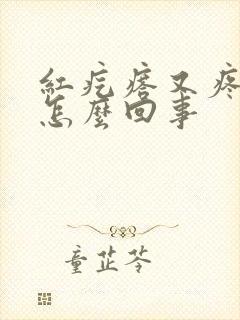 紅疙瘩又疼
怎麼回事
童芷苓